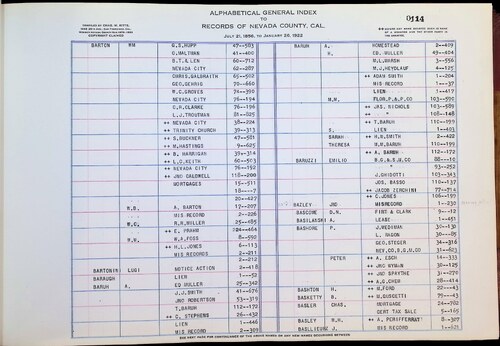 ALPHABETICAL GENERAL INDEX
TO
RECORDS OF NEVADA COUNTY, CAL.
JULY 21, 1856, TO JANUARY 26, 1922
0114
COPYRIGHT CLAIMED
BARTON WM G.S. HUPP 47--503
G. WALTMAN 41--406
S.T. & LEN 60--712
NEVADA CITY 62--287
CHRIS. GALBRAITH 65--502
GEO. GEHRIG 70--660
W.C. GROVES 74--390
NEVADA CITY 76--194
C.R. CLARKE 76--196
L.J. TROUTMAN 81--025
++ NEVADA CITY 38--224
++ TRINITY CHURCH 39--313
++ S. BUCKNER 47--501
++ M. HASTINGS 9--625
++ B. HARRIGAN 39--314
++ L.O. KEITH 60--503
++ NEVADA CITY 76--192
++ JNO CALDWELL 118--200
MORTGAGES 15--511
18---7
20--427
W.D. A. BARTON 17--207
MIS RECORD 2--226
W.G. R.H. MULLER 25--485
++ E. PRAHM 104-464
W.W. W.A. FOSS 8--592
++ H.L. JONES 6--113
MIS RECORDS 2--211
2--212
BARTONINI LUGI NOTICE ACTION 2--418
BARAUGH LIEN 1---52
BARUH A. ED MULLER 25--342
J.J. SMITH 41--676
JNO ROBERTSON 53--319
T. BARUH 112--172
++ C. STEPHENS 26--432
LIEN 1--446
MIS RECORD 2--309
BARUH A. HOMESTEAD 2--409
H. ED. MULLER 49--404
M.L. MARSH 3--556
M.J. HEYDLAUF 4--125
++ ADAM SMITH 1--204
MIS RECORD 1--37
LIEN 1--417
M.W. FLOR. P. & P. CO 103--590
++ JAS. NICHOLS 103--589
++ " 108--148
++ T. BARUH 110--199
S. LIEN 1--403
SARAH ++ H.N. SMITH 2--422
THERESA M.W. BARUH 110--199
++ A. BARUH 112--172
BARUZZI EMILIO B.G. & S.M. CO 88--10
" 93--252
J. GHIDOTTI 103--343
JOS. BASSO 110--137
++ JACOB ZERCHINI 77--71
++ C. JONES 106--199
BAZLEY JNO MISRECORD 1--230
BASCOME D.N. FLINT & CLARK 9--12
BASILASKI A. LEASE 1--451
BASHORE P. J. WEDEKIND 30--130
L. RADON 30--85
GEO. STEGER 34--316
NEV. CO. N.G. R.R. CO 31--623
PETER ++ A. ESCH 14--333
++ JNO WYMAN 30--125
++ JNO SPAYTHE 31--270
++ A.G. CHEW 28--414
BASHTON H. ++ W. FORD 22--43
BASKETTY R. ++ M. GUSDETTI 79--43
BASLER CHAS. MORTGAGE 24--702
DEBT TAX SALE 5--165
BASLEY W.H. ++ A. PERIFFERRAT 8--307
BASLLIEURE J. MIS RECORD 1--621